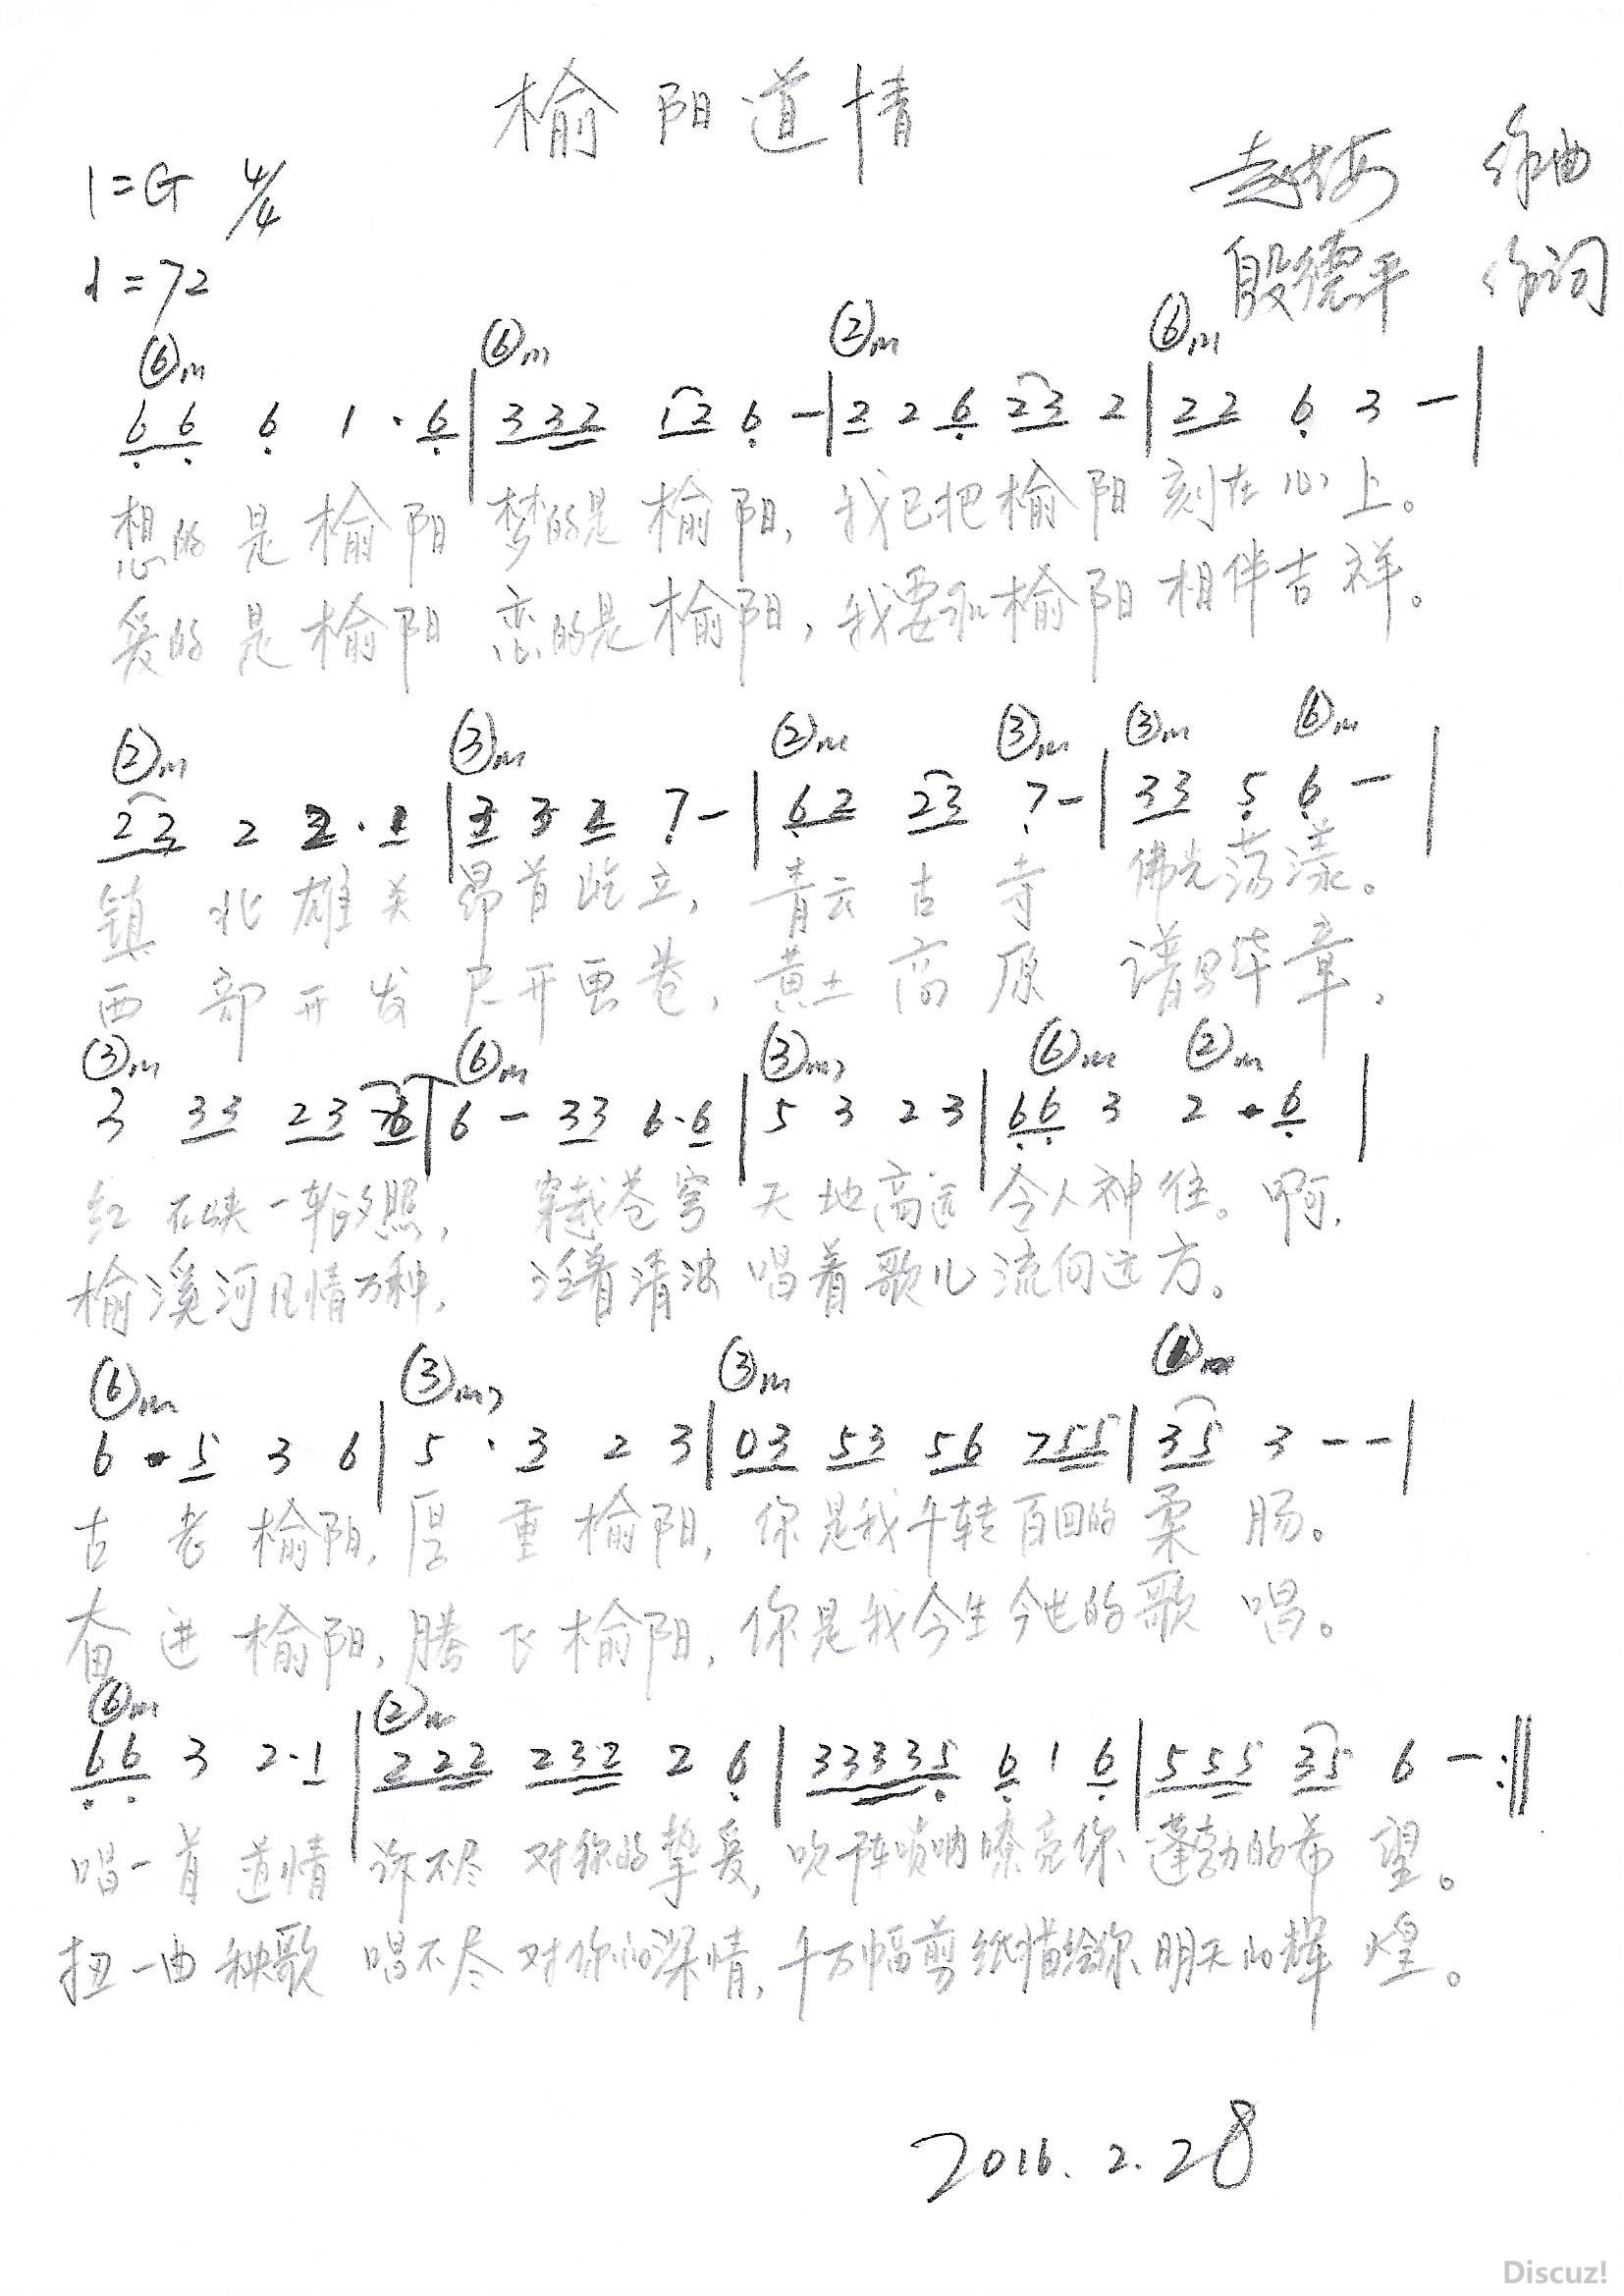 榆阳道情
1=G 4/4 作曲
♩=72 殷德平 作词
⑥m ⑥m ②m ⑥m
6 6 6 1 · 6 | 3 3 2 1 2 6 - | 2 2 6 2 3 2 | 2 2 6 3 - |
想的是榆阳 梦的是榆阳, 我已把榆阳 刻在心上。
爱的是榆阳 恋的是榆阳, 我要和榆阳 相伴吉祥。
②m ③m ②m ③m ③m ⑥m
2 2 2 2 · 1 | 2 3 2 7 - | 6 2 2 3 7 - | 3 3 5 6 - |
镇北雄关 昂首屹立, 青云古寺 佛光荡漾。
西部开发 展开画卷, 黄土高原 谱写华章,
③m ⑥m ③m7 ⑥m ②m
3 3 3 2 3 7 6 | 6 - 3 3 6 · 6 | 5 3 2 3 | 6 6 3 2 · 6 |
红石峡一轮夕照, 穿越苍穹 天地高远 令人神往。啊,
榆溪河风情万种, 泛着清波 唱着歌儿 流向远方。
⑥m ③m7 ③m
6 · 5 3 6 | 5 · 3 2 3 | 0 3 5 3 5 6 7 5 5 | 3 5 3 - - |
古老榆阳, 厚重榆阳, 你是我千转百回的柔肠。
奋进榆阳, 腾飞榆阳, 你是我今生今世的歌唱。
⑥m ②m
6 6 3 2 · 1 | 2 2 2 2 3 2 2 6 | 3 3 3 3 5 6 1 6 | 5 5 5 3 5 6 - :‖
唱一首道情 诉不尽 对你的挚爱, 吹阵唢呐嘹亮你 蓬勃的希望。
扭一曲秧歌 唱不尽 对你的深情, 千万幅剪纸描绘你 明天的辉煌。
2016. 2. 28
Discuz!